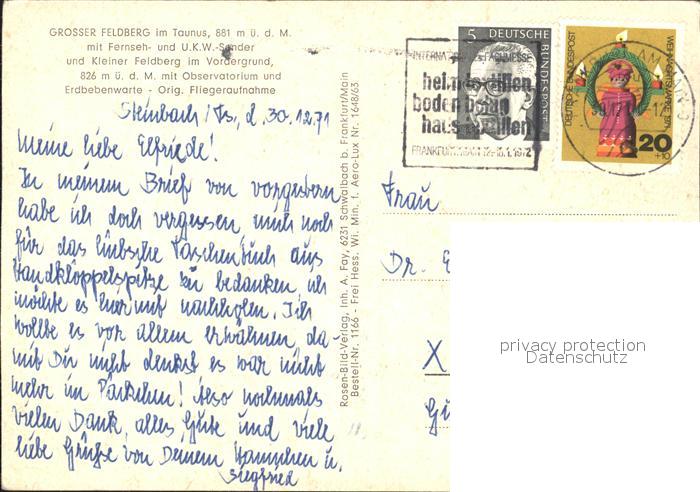 GROSSER FELDBERG im Taunus, 881 m ü. d. M.
mit Fernseh- und U.K.W.-Sender
und Kleiner Feldberg im Vordergrund,
826 m ü. d. M. mit Observatorium und
Erdbebenwarte - Orig. Fliegeraufnahme
Steinbach/Ts, d. 30.12.71
Meine liebe Elfriede!
In meinem Brief von vorgestern
habe ich doch vergessen, mich noch
für das hübsche Taschentuch aus
Handklöppelspitze zu bedanken, ich
möchte es hiermit nachholen. Ich
wollte es vor allem erwähnen, da
mit Du nicht denkst es war nicht
mehr im Päckchen! Also nochmals
vielen Dank, alles Gute und viele
liebe Grüße von Deinem Hannchen u.
Siegfried
Rosen-Bild-Verlag, Inh. A. Fay, 6231 Schwalbach b. Frankfurt/Main
Bestell-Nr. 1166 - Frei Hess. Wi. Min. f. Aero-Lux Nr. 1648/63
5 DEUTSCHE
BUNDESPOST
INTERNATIONALE FACHMESSE
heimtextilien
bodenbelag
haustextilien
FRANKFURT/MAIN 12.-16.1.1972
DEUTSCHE BUNDESPOST
WEIHNACHTSMARKE 1971
20
+10
Frau
Dr. E
X
privacy protection
Datenschutz